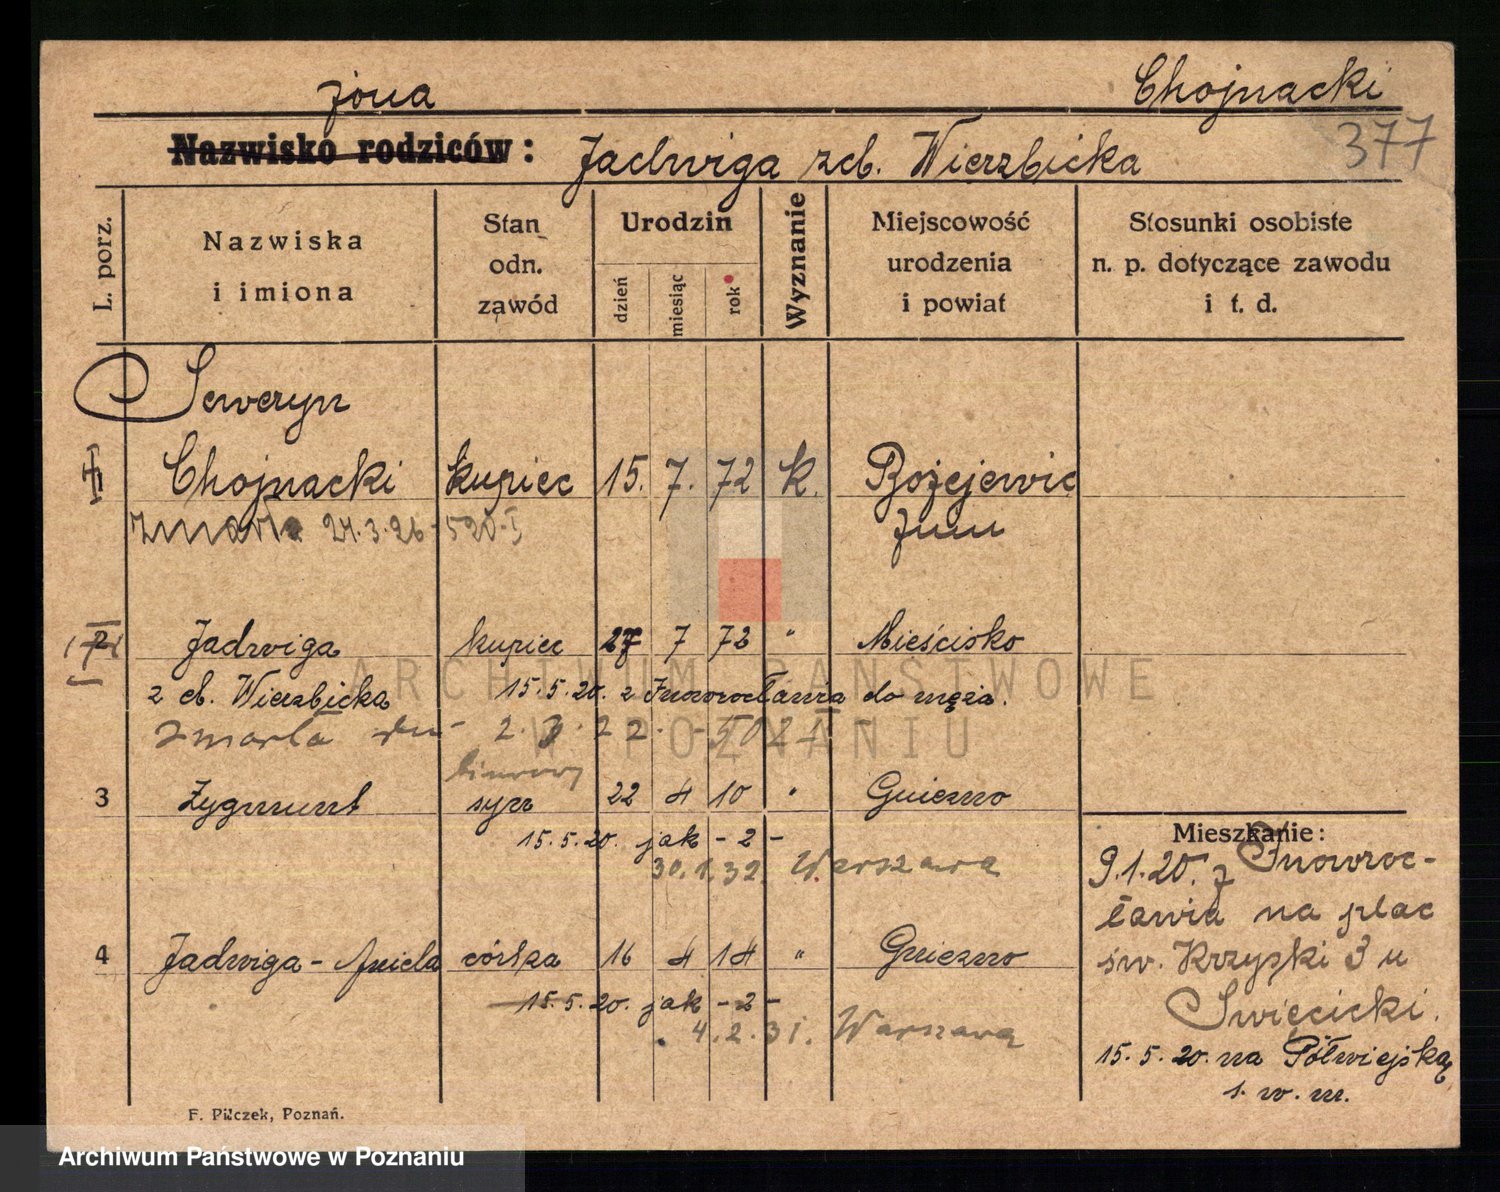 żona Chojnacki
377
Nazwisko rodziców: Jadwiga z cb. Wierzbicka
L. porz.
Nazwiska
i imiona
Stan
odn.
zawód
Urodzin
dzień
miesiąc
rok
Wyznanie
Miejscowość
urodzenia
i powiat
Stosunki osobiste
n. p. dotyczące zawodu
i t. d.
Seweryn
Chojnacki kupiec 15. 7. 72 k. Bożejewic
Żnin
24.3.26 - 520-I
2 Jadwiga kupiec 27 7 72 " Mieścisko
z cb. Wierzbicka 15.5.20. z Inowrocławia do męża.
zmarła dn- 2. 3. 22. - 502 I -
biurowy
3 Zygmunt syn 22 4 10 " Gniezno
15.5.20. jak - 2 -
30.1.32. Warszawa
4 Jadwiga - Aniela córka 16 4 14 " Gniezno
15.5.20. jak - 2 -
4.2.31. Warszawa
Mieszkanie:
9.1.20. z Inowroc-
ławia na plac
św. Krzyski 3 u
Święcicki.
15.5.20. na Półwiejską
1. w. m.
F. Pilczek, Poznań.
ARCHIWUM PAŃSTWOWE
W POZNANIU
Archiwum Państwowe w Poznaniu